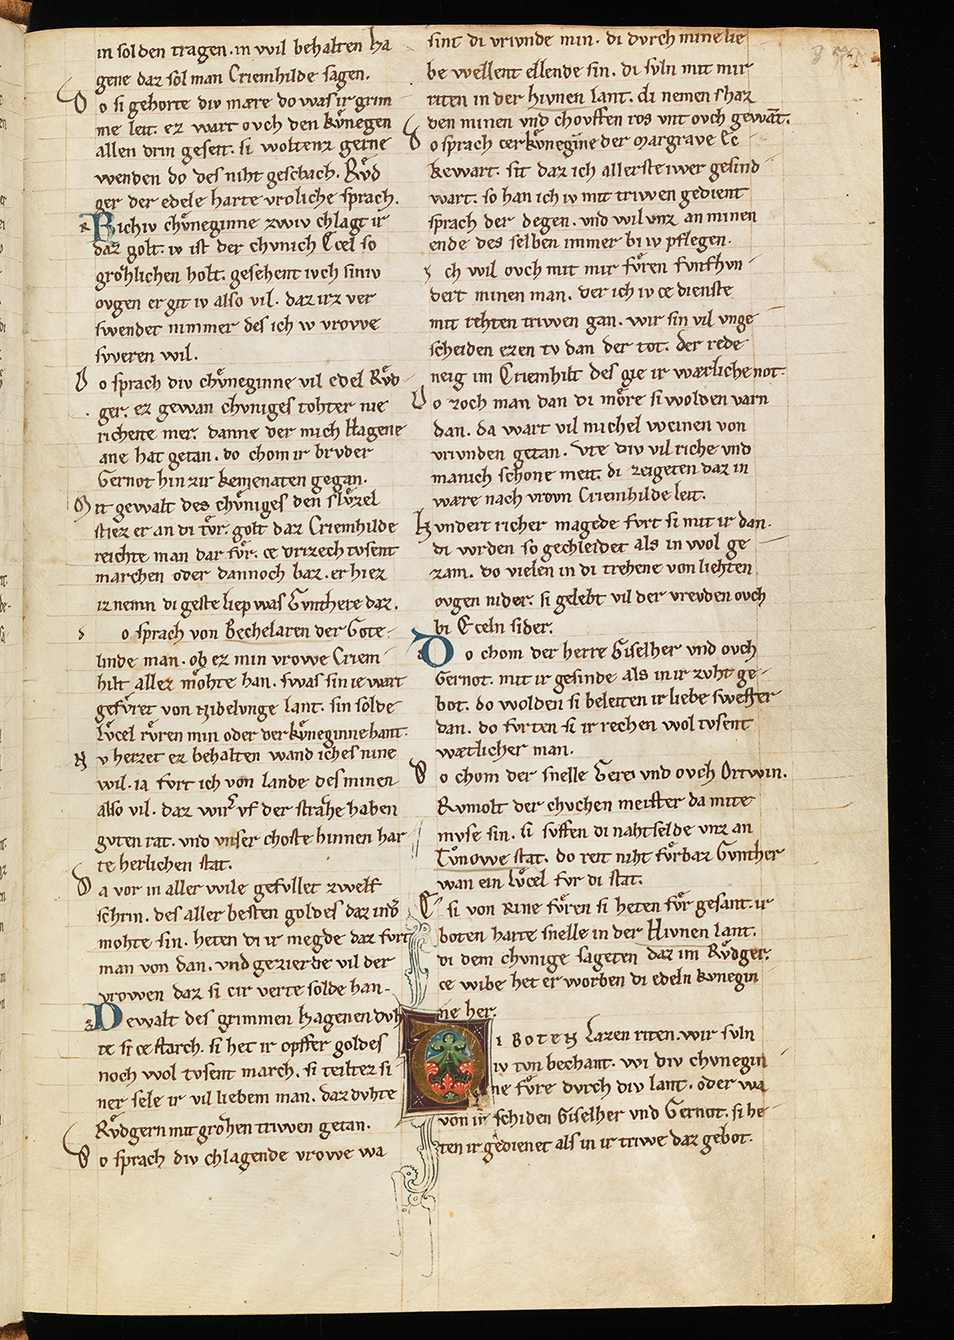 in solden tragen. in wil behalten ha
gene daz sol man Criemhilde sagen.
D o si gehorte div mære do was ir grim
me leit. ez wart ovch den kv̊negen
allen drin geseit. si woltenz gerne
wenden do des niht geschach. Rv̊d
ger der edele harte vroliche sprach.
R ichiv chv̊neginne zwiv chlagt ir
daz golt. iv ist der chvnich Ecel so
grozlichen holt. gesehent ivch siniv
ovgen er git iv also vil. daz irz ver
swendet nimmer des ich iv vrowe
sweren wil.
D o sprach div chv̊neginne vil edel Rv̊d
ger. ez gewan chvniges tohter nie
richeite mer. danne der mich Hagene
ane hat getan. do chom ir brvder
Gernot hin zir kemenaten gegan.
M it gewalt des chv̊niges den slv̊zel
stiez er an di tv̊r. golt daz Criemhilde
reichte man dar fv̊r. ce drizech tvsent
marchen oder dannoch baz. er hiez
iz nemn di geste liep was Gvnthere daz.
s o sprach von Bechelaren der Gote
linde man. ob ez min vrowe Criem
hilt allez mohte han. swaz sin ie wart
gefv̊ret von Nibelvnge lant. sin solde
lv̊cel rv̊ren min oder der kv̊neginne hant.
N v heizet ez behalten wand iches niene
wil. ia fvrt ich von lande des minen
also vil. daz wirs vf der strazhe haben
gvten rat. vnd vnser choste hinnen har
te herlichen stat.
D a vor in aller wile gefvllet zwelf
schrin. des aller besten goldes daz inder
mohte sin. heten di ir megde daz fvrt
man von dan. vnd gezierde vil der
vrowen daz si cir verte solde han.
D ewalt des grimmen Hagenen dvh
te si ce starch. si het ir opffer goldes
noch wol tvsent march. si teiltez si
ner sele ir vil liebem man. daz dvhte
Rv̊dgern mit grozhen triwen getan.
D o sprach div chlagende vrowe wa
sint di vrivnde min. di dvrch mine lie
be wellent ellende sin. di svln mit mir
riten in der Hivnen lant. di nemen shaz
den minen vnd chovffen ros vnt ovch gewāt.
D o sprach cer kv̊neginne der Margrave Ec
kewart. sit daz ich allerste iwer gesind
wart. so han ich iv mit triwen gedient
sprach der degen. vnd wil vnz an minen
ende des selben immer bi iv pflegen.
i ch wil ovch mit mir fv̊ren fvnfhvn
dert minen man. der ich iv ce dienste
mit rehten triwen gan. wir sin vil vnge
scheiden ezen tv dan der tot. der rede
neig im Criemhilt des gie ir wærliche not.
D o zoch man dan di mo̊re si wolden varn
dan. da wart vil michel weinen von
vrivnden getan. Vte div vil riche vnd
manich schone meit. di zeigeten daz in
wære nach vrovn Criemhilde leit.
h vndert richer magede fvrt si mit ir dan.
di wrden so gechleidet als in wol ge
zam. do vielen in di trehene von liehten
ovgen nider. si gelebt vil der vrevden ovch
bi Eceln sider.
D o chom der herre Giselher vnd ovch
Gernot. mit ir gesinde als in ir zvht ge
bot. do wolden si beleiten ir liebe swester
dan. do fvrten si ir rechen wol tvsent
wætlicher man.
D o chom der snelle Gere vnd ovch Ortwin.
Rvmolt der chvchen meister da mite
mvse sin. si svffen di nahtselde vnz an
Tv̊nowe stat. do reit niht fv̊rbaz Gvnther
wan ein lv̊cel fvr di stat.
E si von Rine fv̊ren si heten fv̊r gesant. ir
boten harte snelle in der Hivnen lant.
di dem chvnige sageten daz im Rv̊dger.
ce wibe het er worben di edeln kvnegin
ne her.
D I BOTEN lazen riten. wir svln
iv tvn bechant. wi div chvnegin
ne fv̊re dvrch div lant. oder wa
von ir schiden Giselher vnd Gernot. si he
ten ir gedienet als in ir triwe daz gebot.